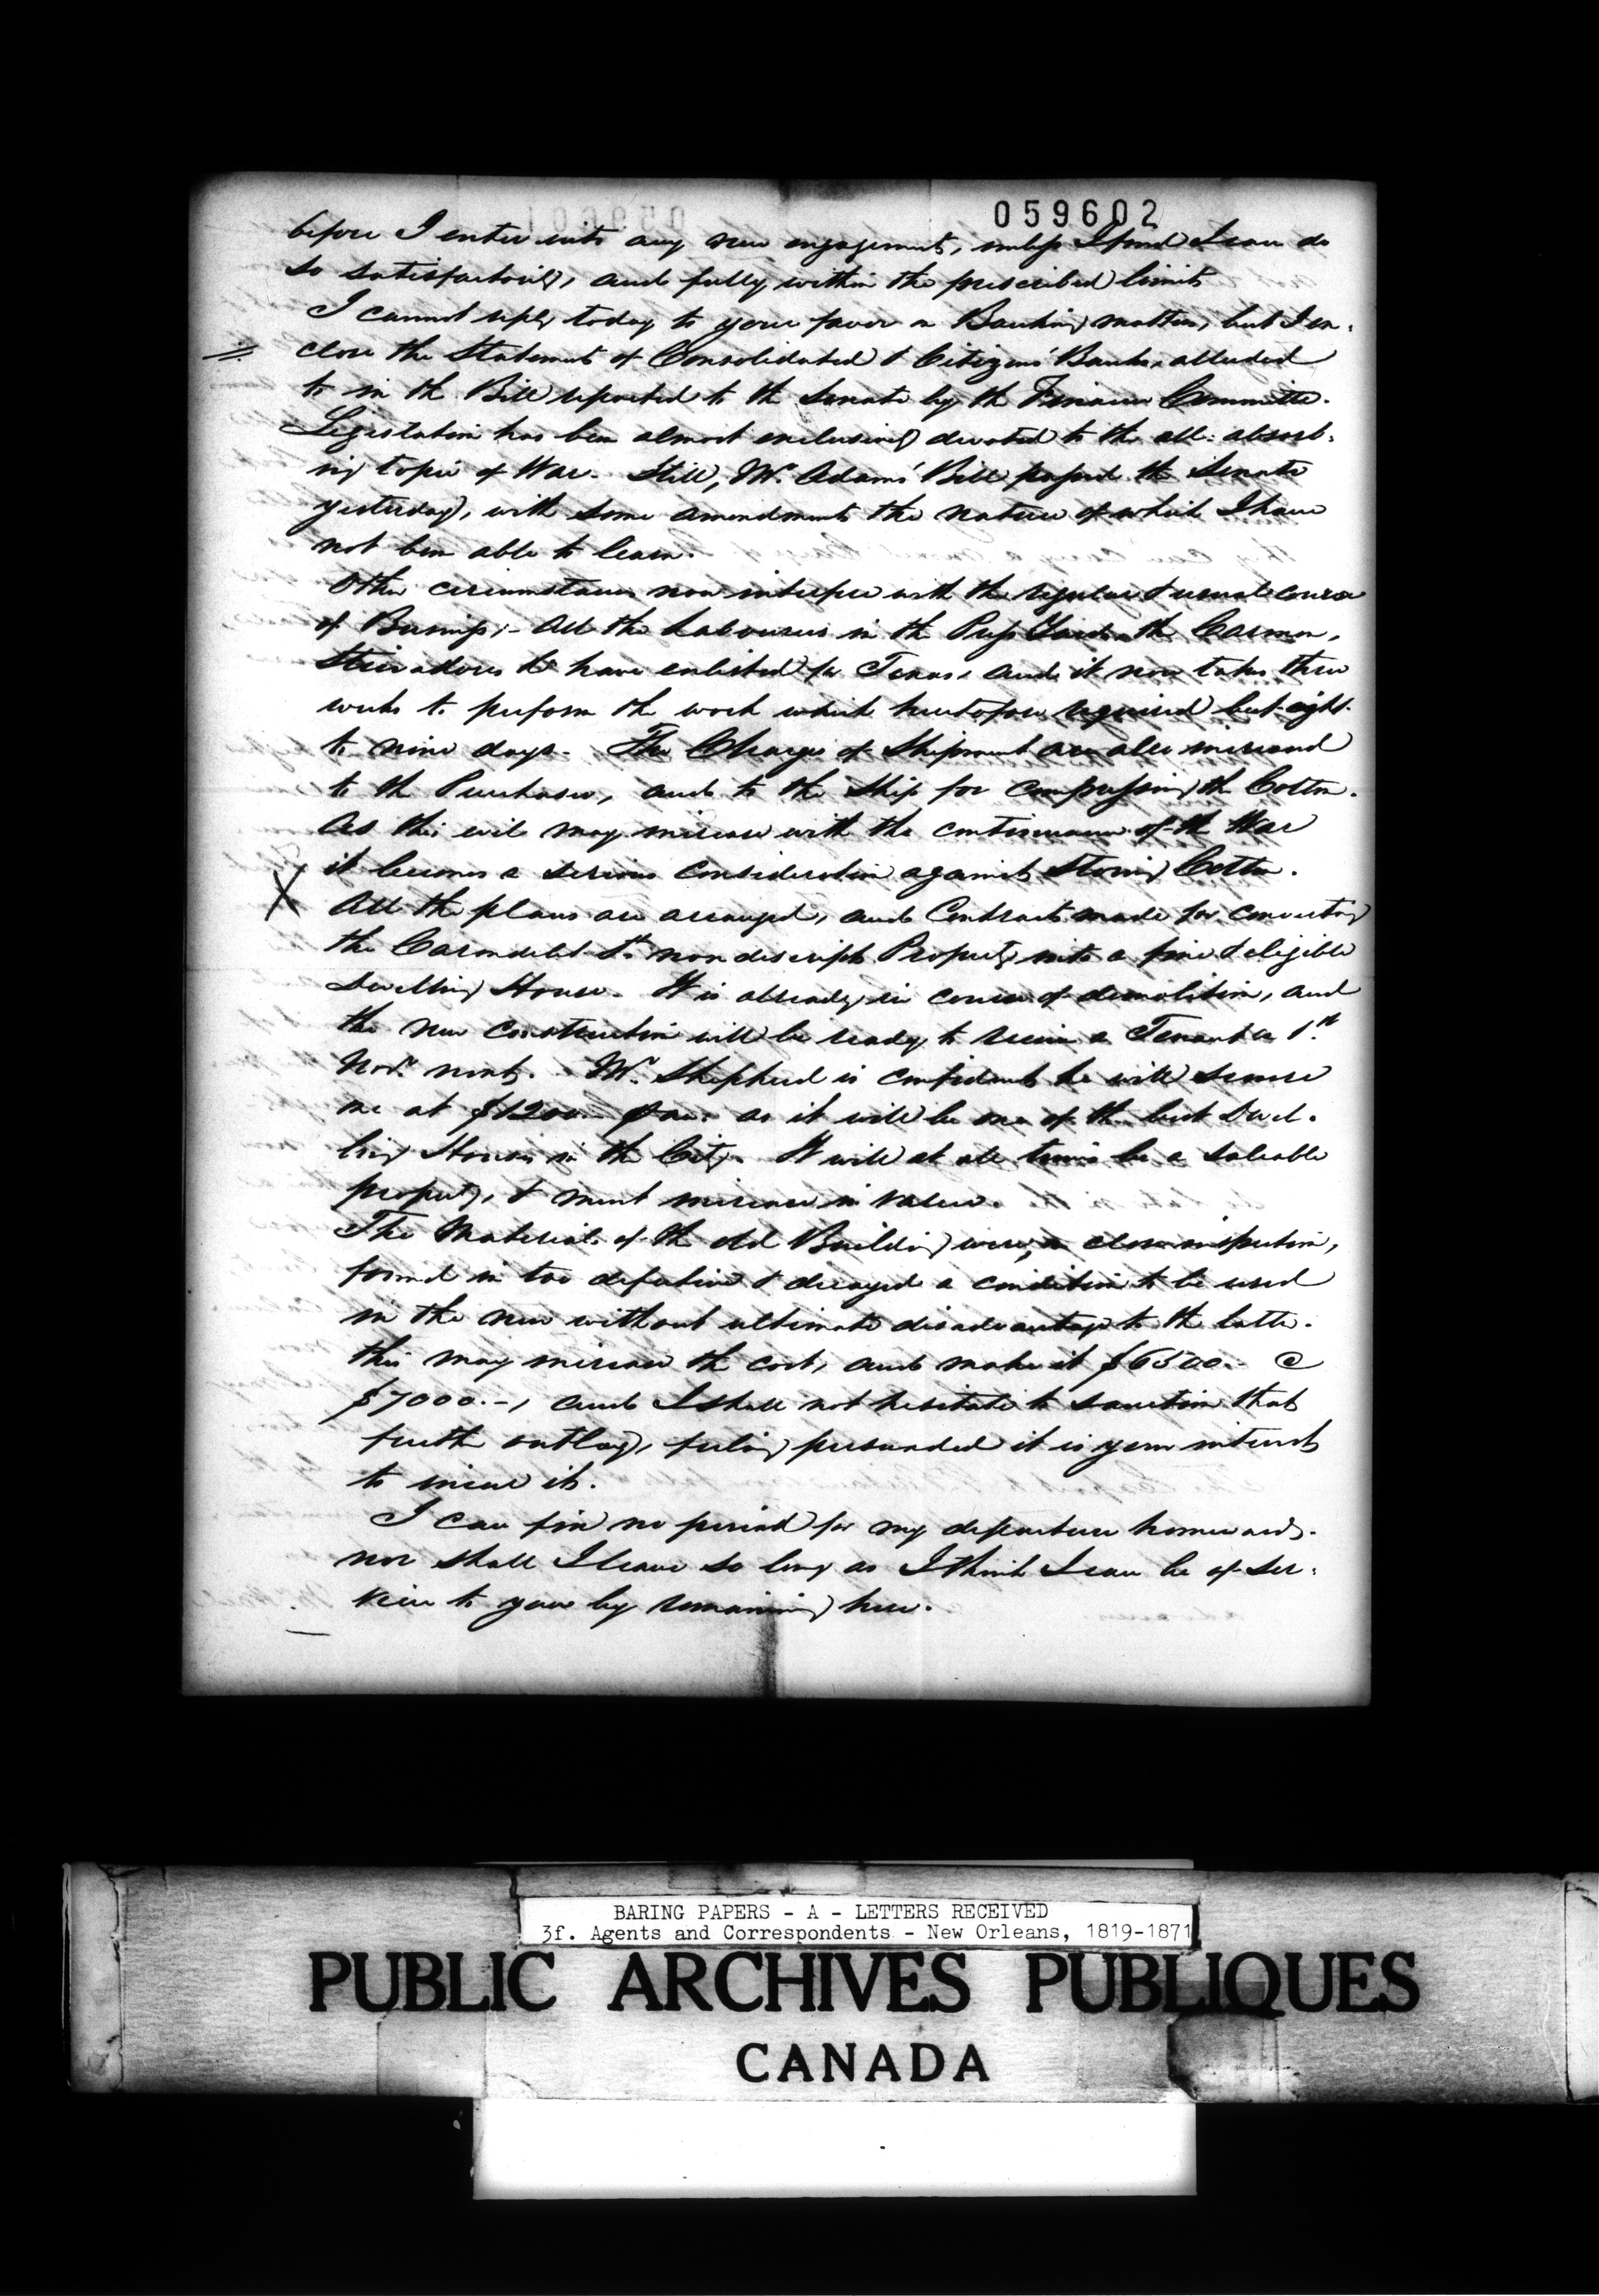 059602
before I enter into any new engagement, unless I find I can do
so satisfactorily, and fully within the prescribed limits
I cannot reply today to your favor on Banking matters, but I en:
close the Statement of Consolidated & Citizens' Banks, alluded
to in the Bill reported to the Senate by the Finance Committee.
Legislation has been almost exclusively devoted to the all: absorb:
ing topic of War. Still, Mr. Adams' Bill passed the Senate
yesterday, with some amendments the nature of which I have
not been able to learn.
Other circumstances now interfere with the regular & usual course
of Business;- All the Labourers in the Press Yards the Carmen,
Stevadores &c have enlisted for Texas, and it now takes three
weeks to perform the work which heretofore required but eight
to nine days. The Charges of Shipment are also increased
to the Purchaser, and to the Ship for compressing the Cotton.
As this evil may increase with the continuance of the War
it becomes a serious consideration against Storing Cotton.
X All the plans are arranged, and Contracts made for converting
the Carondelet St. nondescript Property into a fine & eligible
Dwelling House. It is already in course of demolition, and
the new construction will be ready to receive a Tenant on 1st
Novr. next. Mr. Shepherd is confident he will secure
me at $1200.- as it will be one of the best Dwel:
ling Houses in the City. It will at all times be a saleable
property, & must increase in value.
The Materials of the old Building were, on close inspection,
found in too defective & decayed a condition to be used
in the new without ultimate disadvantage to the latter.
this may increase the cost, and make it $6500.- @
$7000.-, and I shall not hesitate to sanction that
further outlay, feeling persuaded it is your interest
to incur it.
I can fix no period for my departure homewards.
nor shall I leave so long as I think I can be of ser:
vice to you by remaining here.
BARING PAPERS - A - LETTERS RECEIVED
3f. Agents and Correspondents - New Orleans, 1819-1871
PUBLIC ARCHIVES PUBLIQUES
CANADA